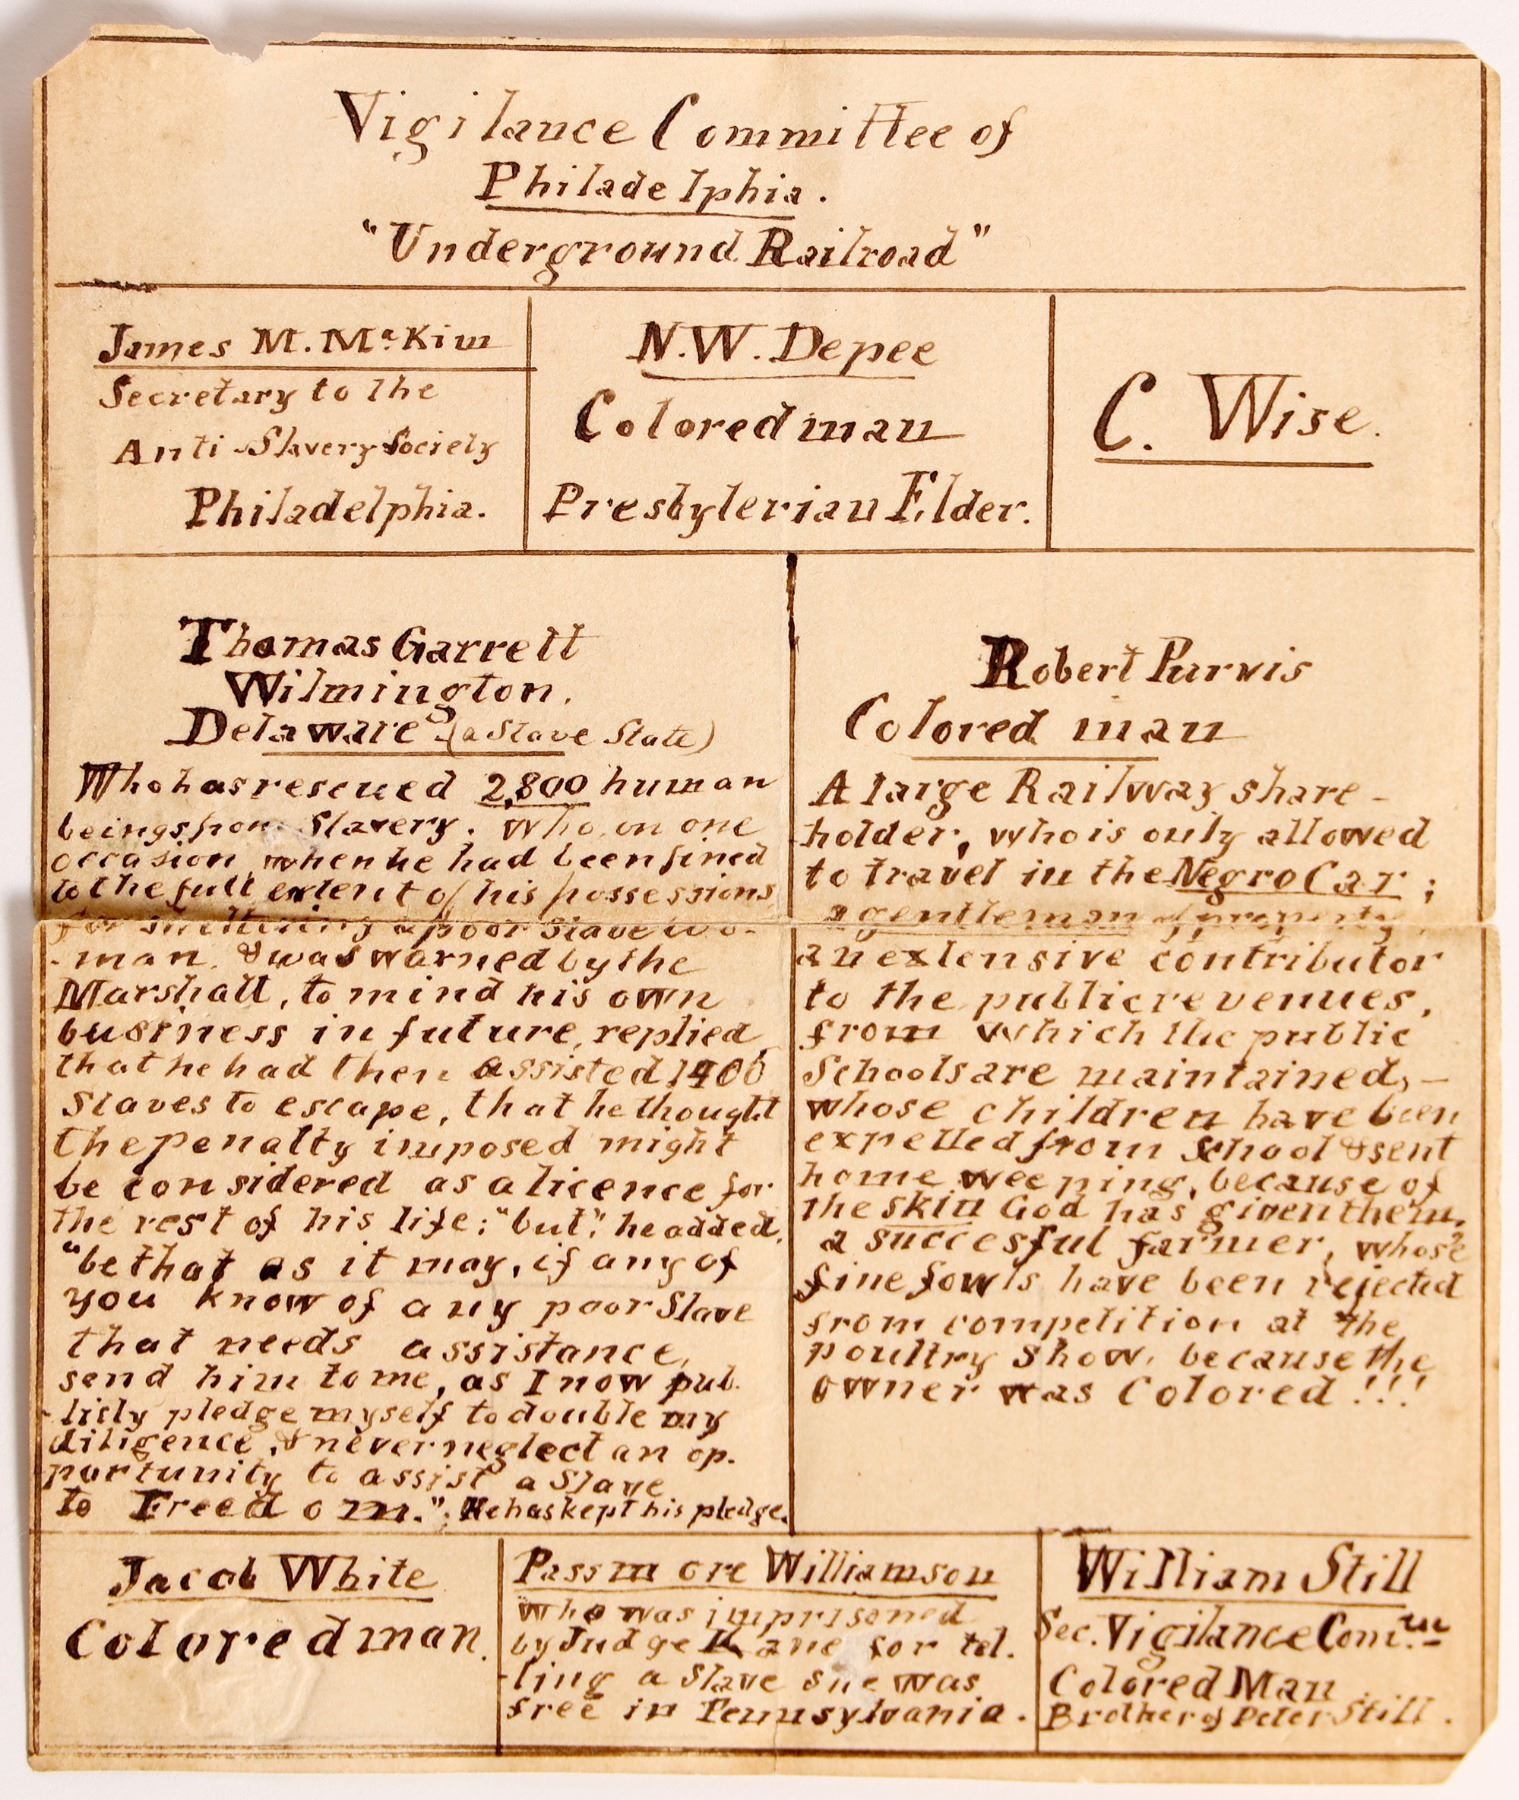 Vigilance Committee of
Philadelphia.
"Underground Railroad"
James M. Mc.Kim
Secretary to the
Anti-Slavery Society
Philadelphia.
N.W. Depee
Colored man
Presbyterian Elder.
C. Wise.
Thomas Garrett
Wilmington.
Delaware (a Slave State)
Who has rescued 2,800 human
beings from Slavery. Who, on one
occasion, when he had been fined
to the full extent of his possessions
for sheltering a poor slave wo-
-man, & was warned by the
Marshall, to mind his own
business in future, replied,
that he had then assisted 1400
Slaves to escape, that he thought
the penalty imposed might
be considered as a licence for
the rest of his life; "but", he added,
"be that as it may, if any of
you know of any poor Slave
that needs assistance,
send him to me, as I now pub.
-licly pledge myself to double my
diligence, & never neglect an op.
portunity to assist a Slave
to Freedom."; He has kept his pledge.
Robert Purvis
Colored man
A large Railway share-
holder, who is only allowed
to travel in the Negro Car;
a gentleman of property,
an extensive contributor
to the public revenues,
from which the public
Schools are maintained, -
whose children have been
expelled from School & sent
home weeping, because of
the skin God has given them.
a succesful farmer, whose
fine fowls have been rejected
from competition at the
poultry show, because the
owner was Colored!!!
Jacob White
Colored man.
Passmore Williamson
who was imprisoned
by Judge Kane for tel.
-ling a Slave she was
free in Pennsylvania.
William Still
Sec. Vigilance Com.
Colored Man
Brother of Peter Still.